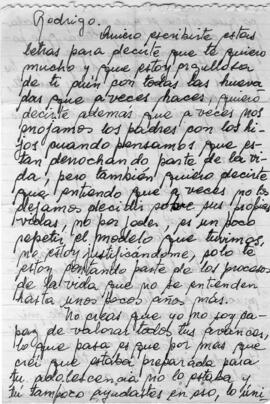 Rodrigo.
Quiero escribirte estas
letras para decirte que te quiero
mucho y que estoy orgullosa
de ti aún con todas las hueva
das que a veces haces, quiero
decirte ademas que a veces nos
enojamos los padres con los hi
jos cuando pensamos que es
tan derrochando parte de la vi
da, pero también quiero decirte
que entiendo que a veces no los
dejamos decidir sobre sus propias
vidas, no por joder, es un poco
repetir el modelo que tuvimos,
no estoy justificándome, solo te
estoy contando parte de los procesos
de la vida que no se entienden
hasta unos pocos años más.
No creas que yo no soy ca
paz de valorar todos tus avances,
lo que pasa es que por mas que
creí que estaba preparada para
tu adolescencia no lo estaba y
tú tampoco ayudastes en eso, lo úni